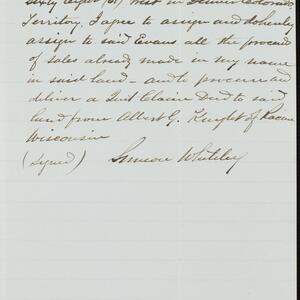 Sixty Eight (68) West in Denver Colorado
Territory. I agree to assign and do hereby
assign to said Evans all the proceeds
of sales already made in my name
in said land - and to procure and
deliver a Quit Claim Deed to said
land from Albert G. Knight of Racine
Wisconsin
(Signed) Simeon Whiteley